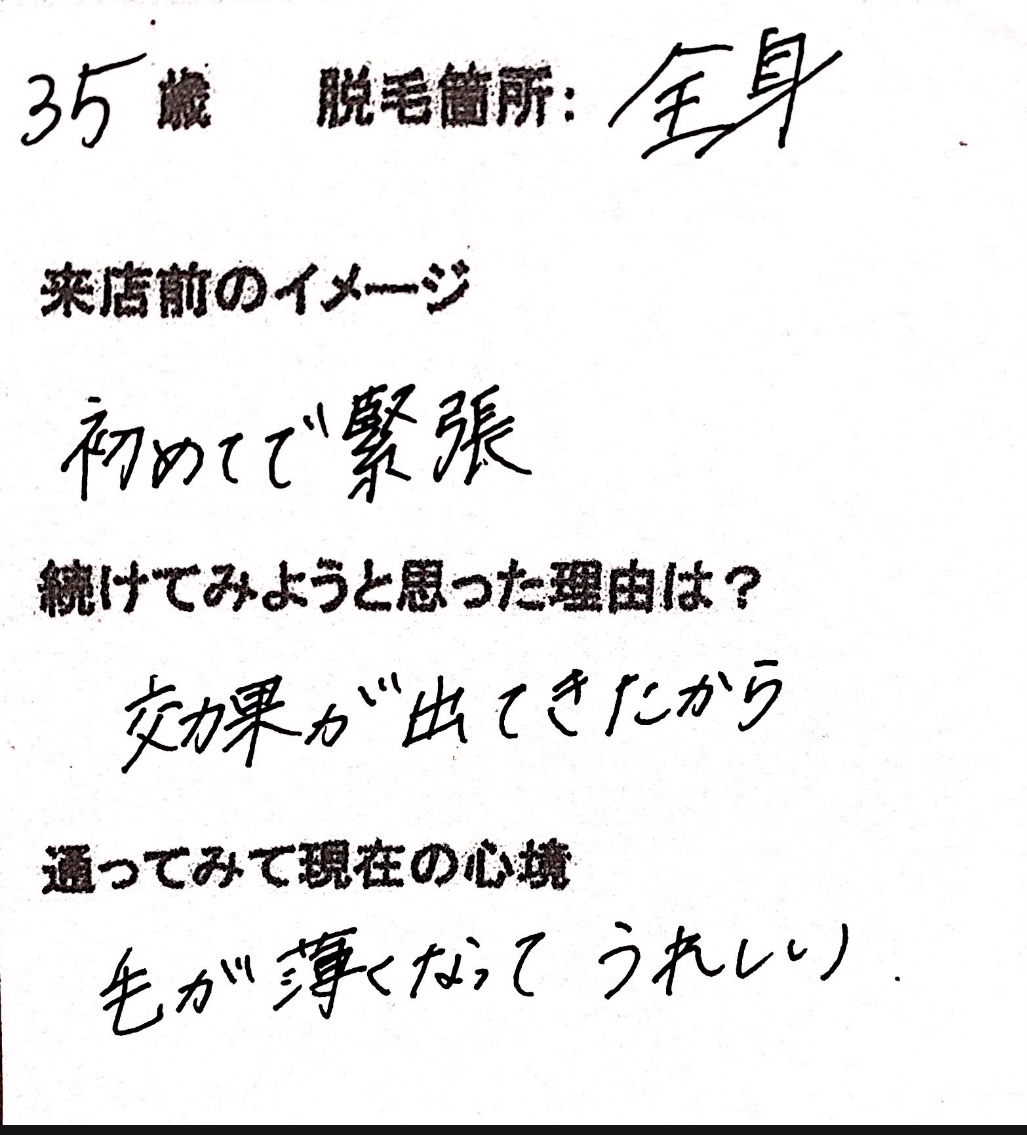 35歳 脱毛箇所:全身
来店前のイメージ
初めてで緊張
続けてみようと思った理由は?
効果が出てきたから
通ってみて現在の心境
毛が薄くなって うれしい.